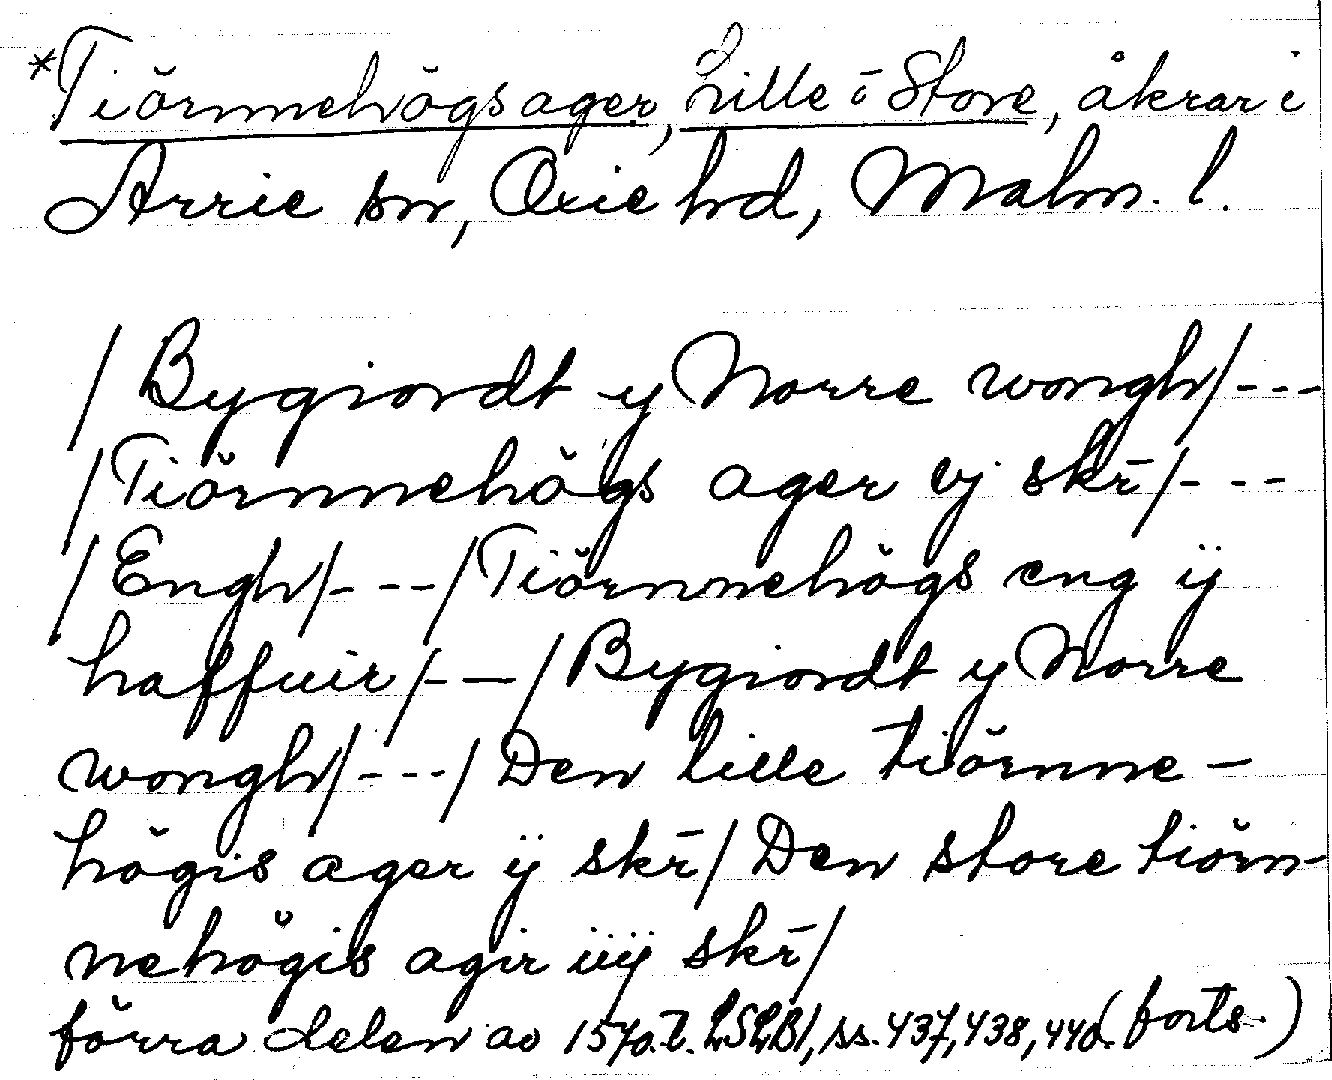 *Tiörnnehögsager, Lille o Store, åkrar i
Arrie sn, Oxie hd, Malm. l.
/ Bygiordt y Norre wongh/---
/Tiörnnehögs ager vj skr̄/---
/Engh/---/Tiörnnehögs eng ij
haffuir/-—/Bygiordt y Norre
wongh/---/Den lille tiörnne-
högis ager ij skr̄/Den store tiörn-
nehögis agir iiij skr̄/
förra delen av 1570.t. LSLB1, ss. 437, 438, 440. (forts.)